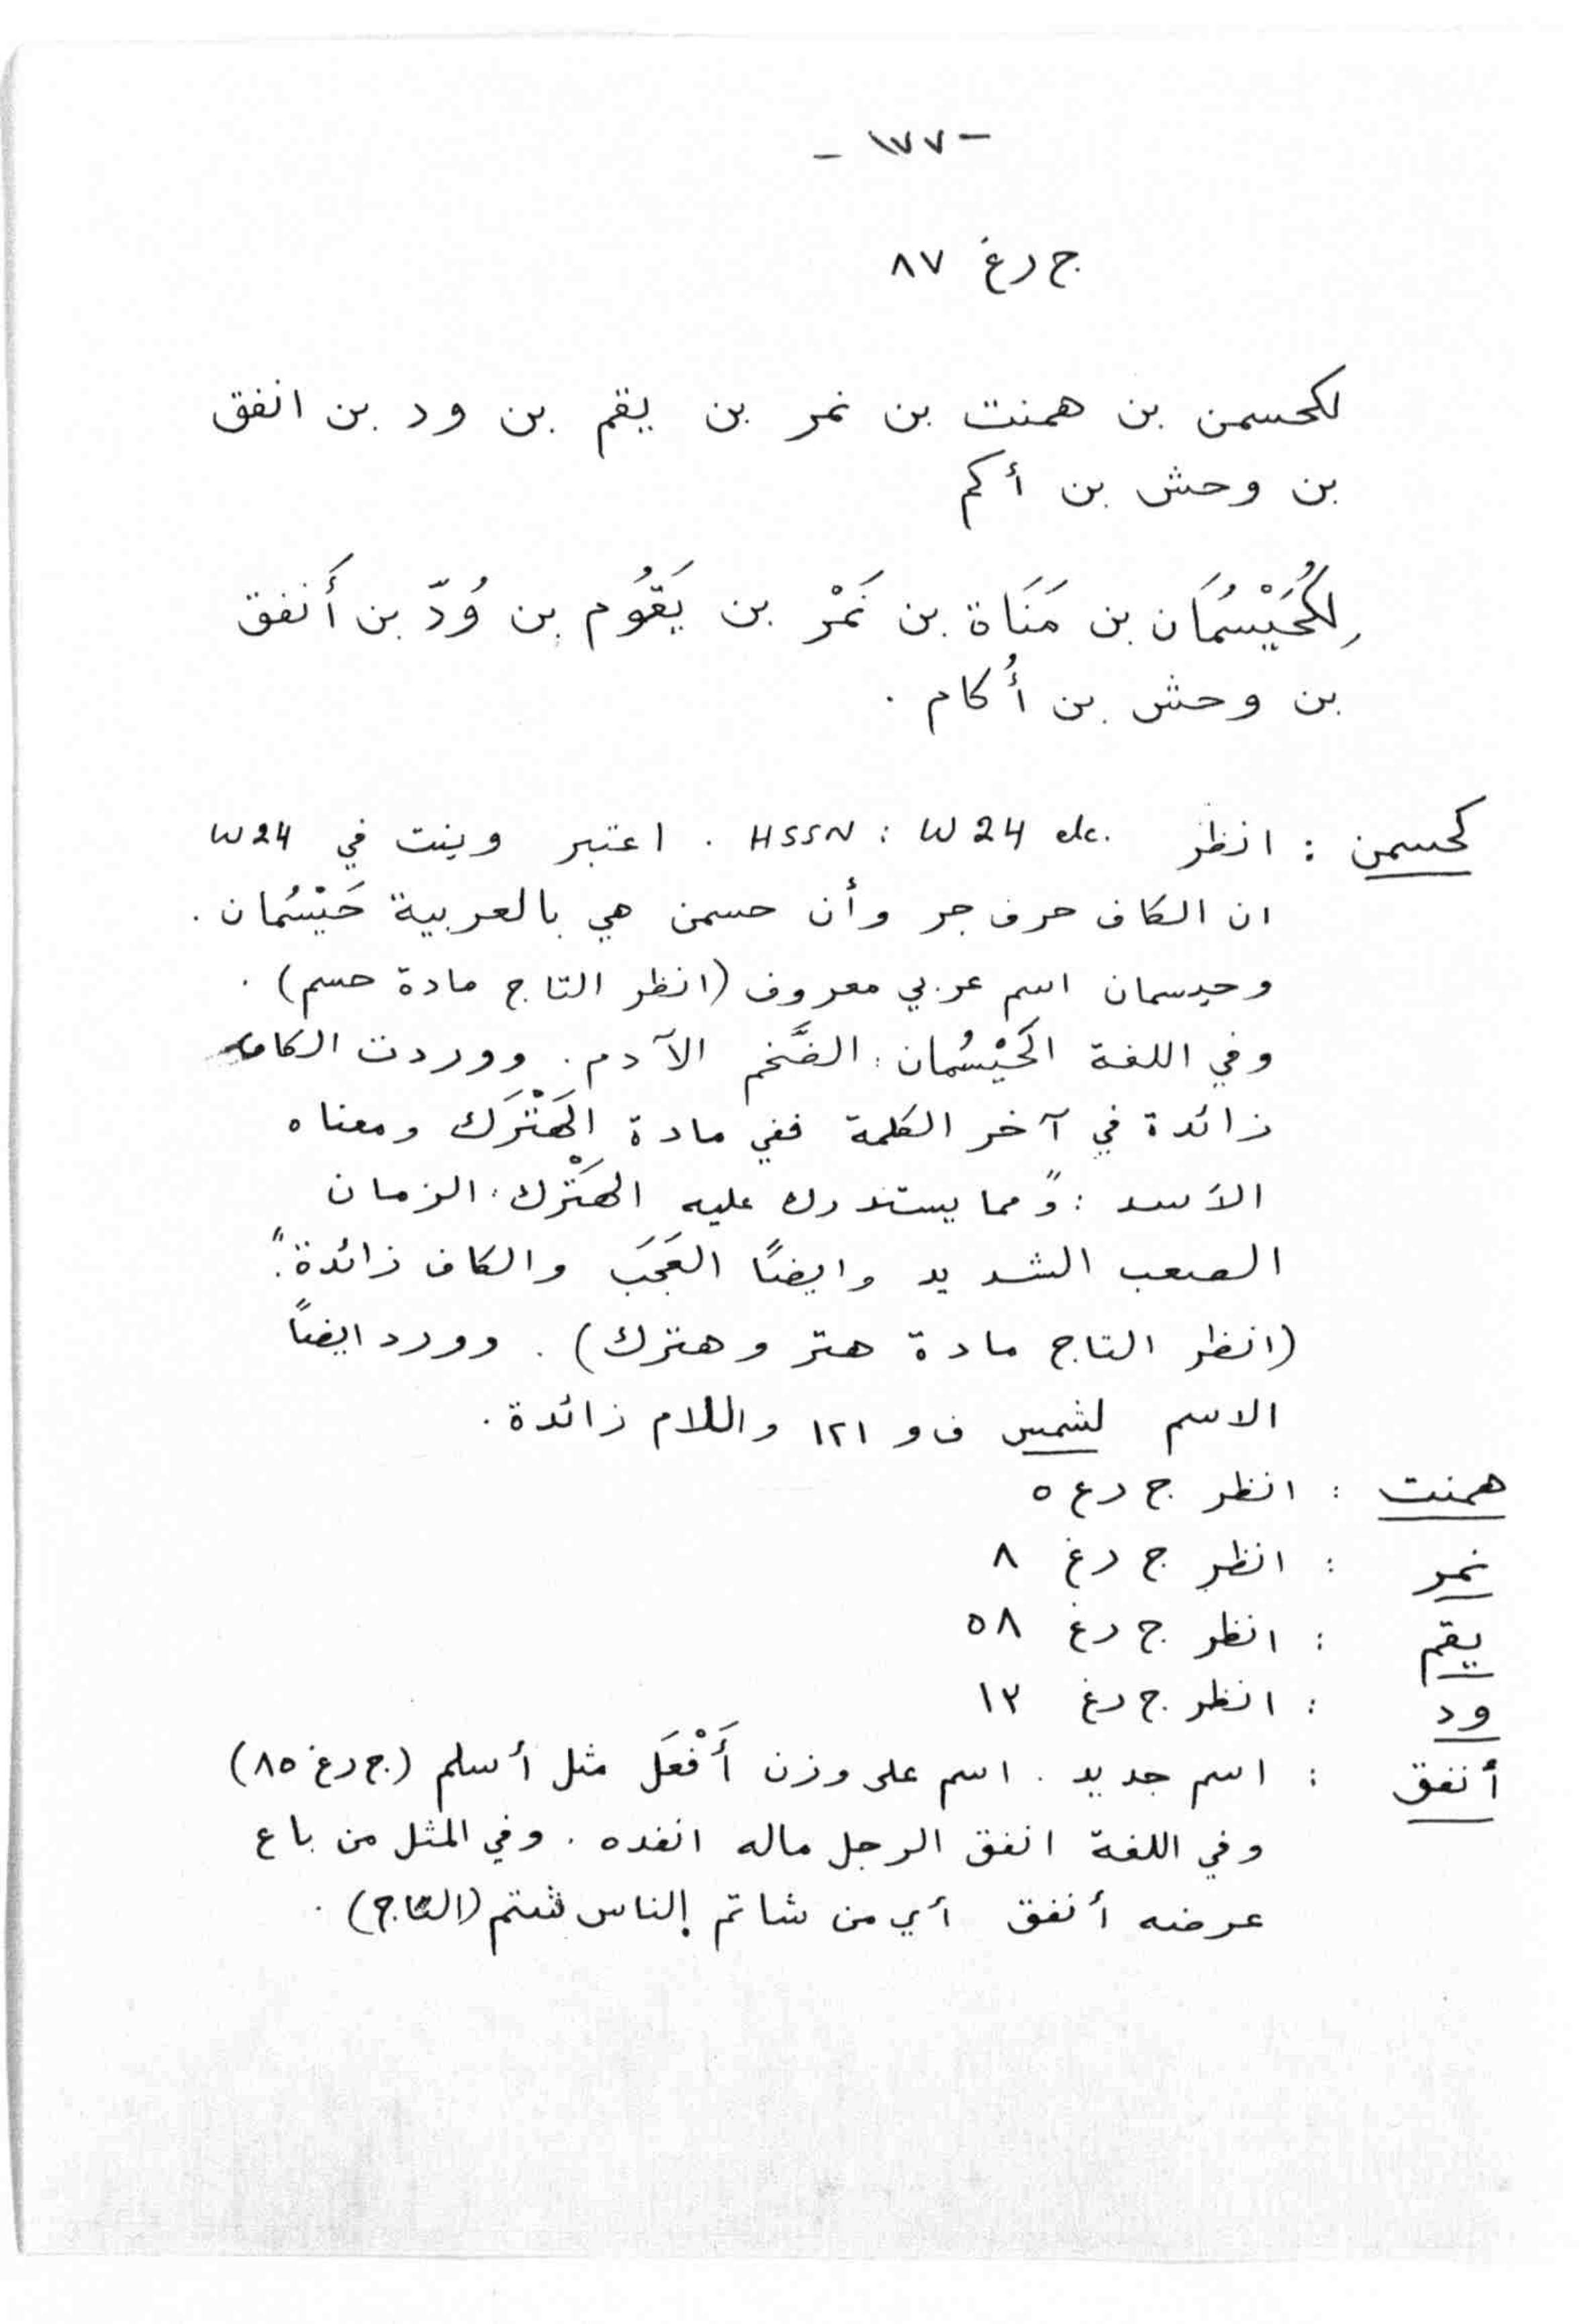 - ١٧٧ -
ج ر غ ٨٧
لكحسمن بن همنت بن نمر بن يقم بن ود بن انفق
بن وحش بن أكم
لِكُحَيْسُمَان بن مَنَاة بن نَمْر بن يَقُوم بن وُدّ بن أَنفق
بن وحش بن أُكام .
كحسمن : انظر HSSN : W 24 etc. . اعتبر وينت في W24
ان الكاف حرف جر وأن حسمن هي بالعربية حَيْسُمان .
وحيسمان اسم عربي معروف (انظر التاج مادة حسم) .
وفي اللغة الحَيْسُمان : الضَّخم الآدم . ووردت الكاف
زائدة في آخر الكلمة ففي مادة الهَتْرَك ومعناه
الأسد : "ومما يستدرك عليه الهَتْرك : الزمان
الصعب الشديد وايضاً العَجَبَ والكاف زائدة ."
(انظر التاج مادة هتر وهترك) . وورد ايضاً
الاسم لشمس ف و ١٢١ واللام زائدة .
همنت : انظر ج ر غ ٥
نمر : انظر ج ر غ ٨
يقم : انظر ج ر غ ٥٨
ود : انظر ج ر غ ١٣
أنفق : اسم جديد . اسم على وزن أَفْعَل مثل أسلم (ج ر غ ٨٥)
وفي اللغة انفق الرجل ماله انفده . وفي المثل من باع
عرضه أنفق أي من شاتم الناس شتم (التاج) .